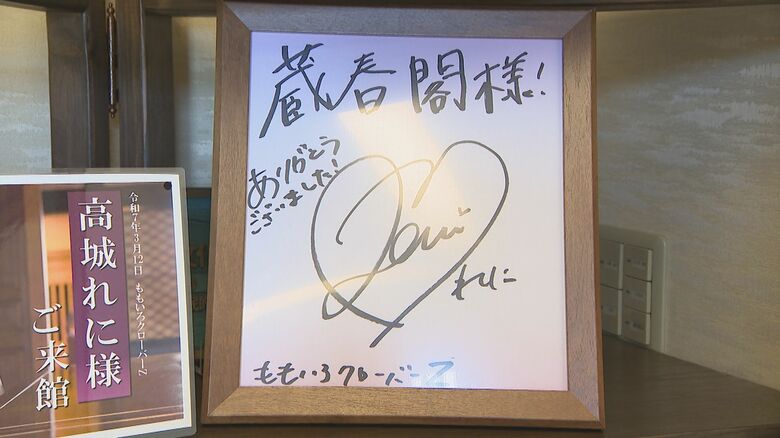 蔵春閣様!
ありがとう
ございました!
Reni
れに
ももいろクローバーZ
令和7年3月12日 ももいろクローバーZ
高城れに様
ご来館